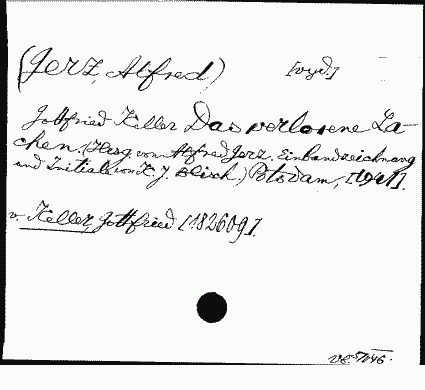 (Jerz, Alfred) [vyd.]
Gottfried Keller Das verlorene La-
chen. (Hrsg. von Alfred Jerz. Einbandzeichnung
und Initiale von K. J. Blisch.) Potsdam, [1941].
v. Keller, Gottfried [182609].